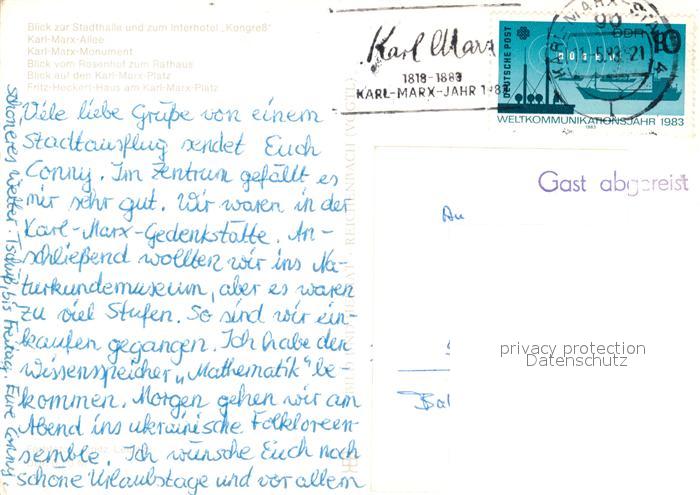 Blick zur Stadthalle und zum Interhotel „Kongreß“
Karl-Marx-Allee
Karl-Marx-Monument
Blick vom Rosenhof zum Rathaus
Blick auf den Karl-Marx-Platz
Fritz-Heckert-Haus am Karl-Marx-Platz
Viele liebe Grüße von einem
Stadtausflug sendet Euch
Conny. Im Zentrum gefällt es
mir sehr gut. Wir waren in der
Karl-Marx-Gedenkstätte. An-
schließend wollten wir ins Na-
turkundemuseum, aber es waren
zu viel Stufen. So sind wir ein-
kaufen gegangen. Ich habe den
Wissensspeicher „Mathematik“ be-
kommen. Morgen gehen wir am
Abend ins ukrainische Folkloreen-
semble. Ich wünsche Euch noch
schöne Urlaubstage und vor allem
schöneres Wetter. Tschüß, bis Freitag. Eure Conny.
Karl Marx
1818-1883
KARL-MARX-JAHR 1983
KARL-MARX-
DEUTSCHE POST
DDR
10
WELTKOMMUNIKATIONSJAHR 1983
1983
Gast abgereist
An
Bal
privacy protection
Datenschutz